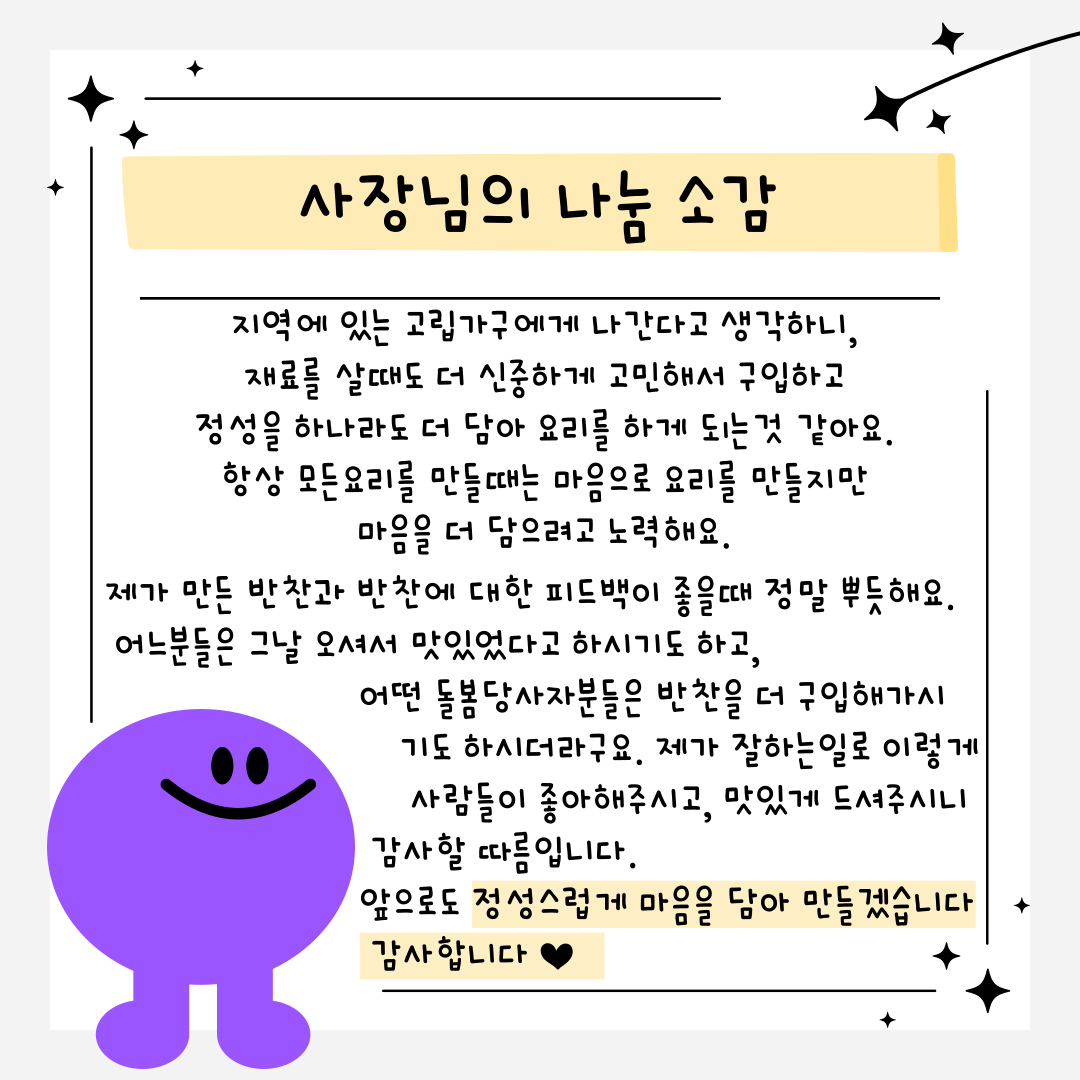 사장님의 나눔 소감
지역에 있는 고립가구에게 나간다고 생각하니,
재료를 살때도 더 신중하게 고민해서 구입하고
정성을 하나라도 더 담아 요리를 하게 되는것 같아요.
항상 모든요리를 만들때는 마음으로 요리를 만들지만
마음을 더 담으려고 노력해요.
제가 만든 반찬과 반찬에 대한 피드백이 좋을때 정말 뿌듯해요.
어느분들은 그날 오셔서 맛있었다고 하시기도 하고,
어떤 돌봄당사자분들은 반찬을 더 구입해가시
기도 하시더라구요. 제가 잘하는일로 이렇게
사람들이 좋아해주시고, 맛있게 드셔주시니
감사할 따름입니다.
앞으로도 정성스럽게 마음을 담아 만들겠습니다
감사합니다 ♥